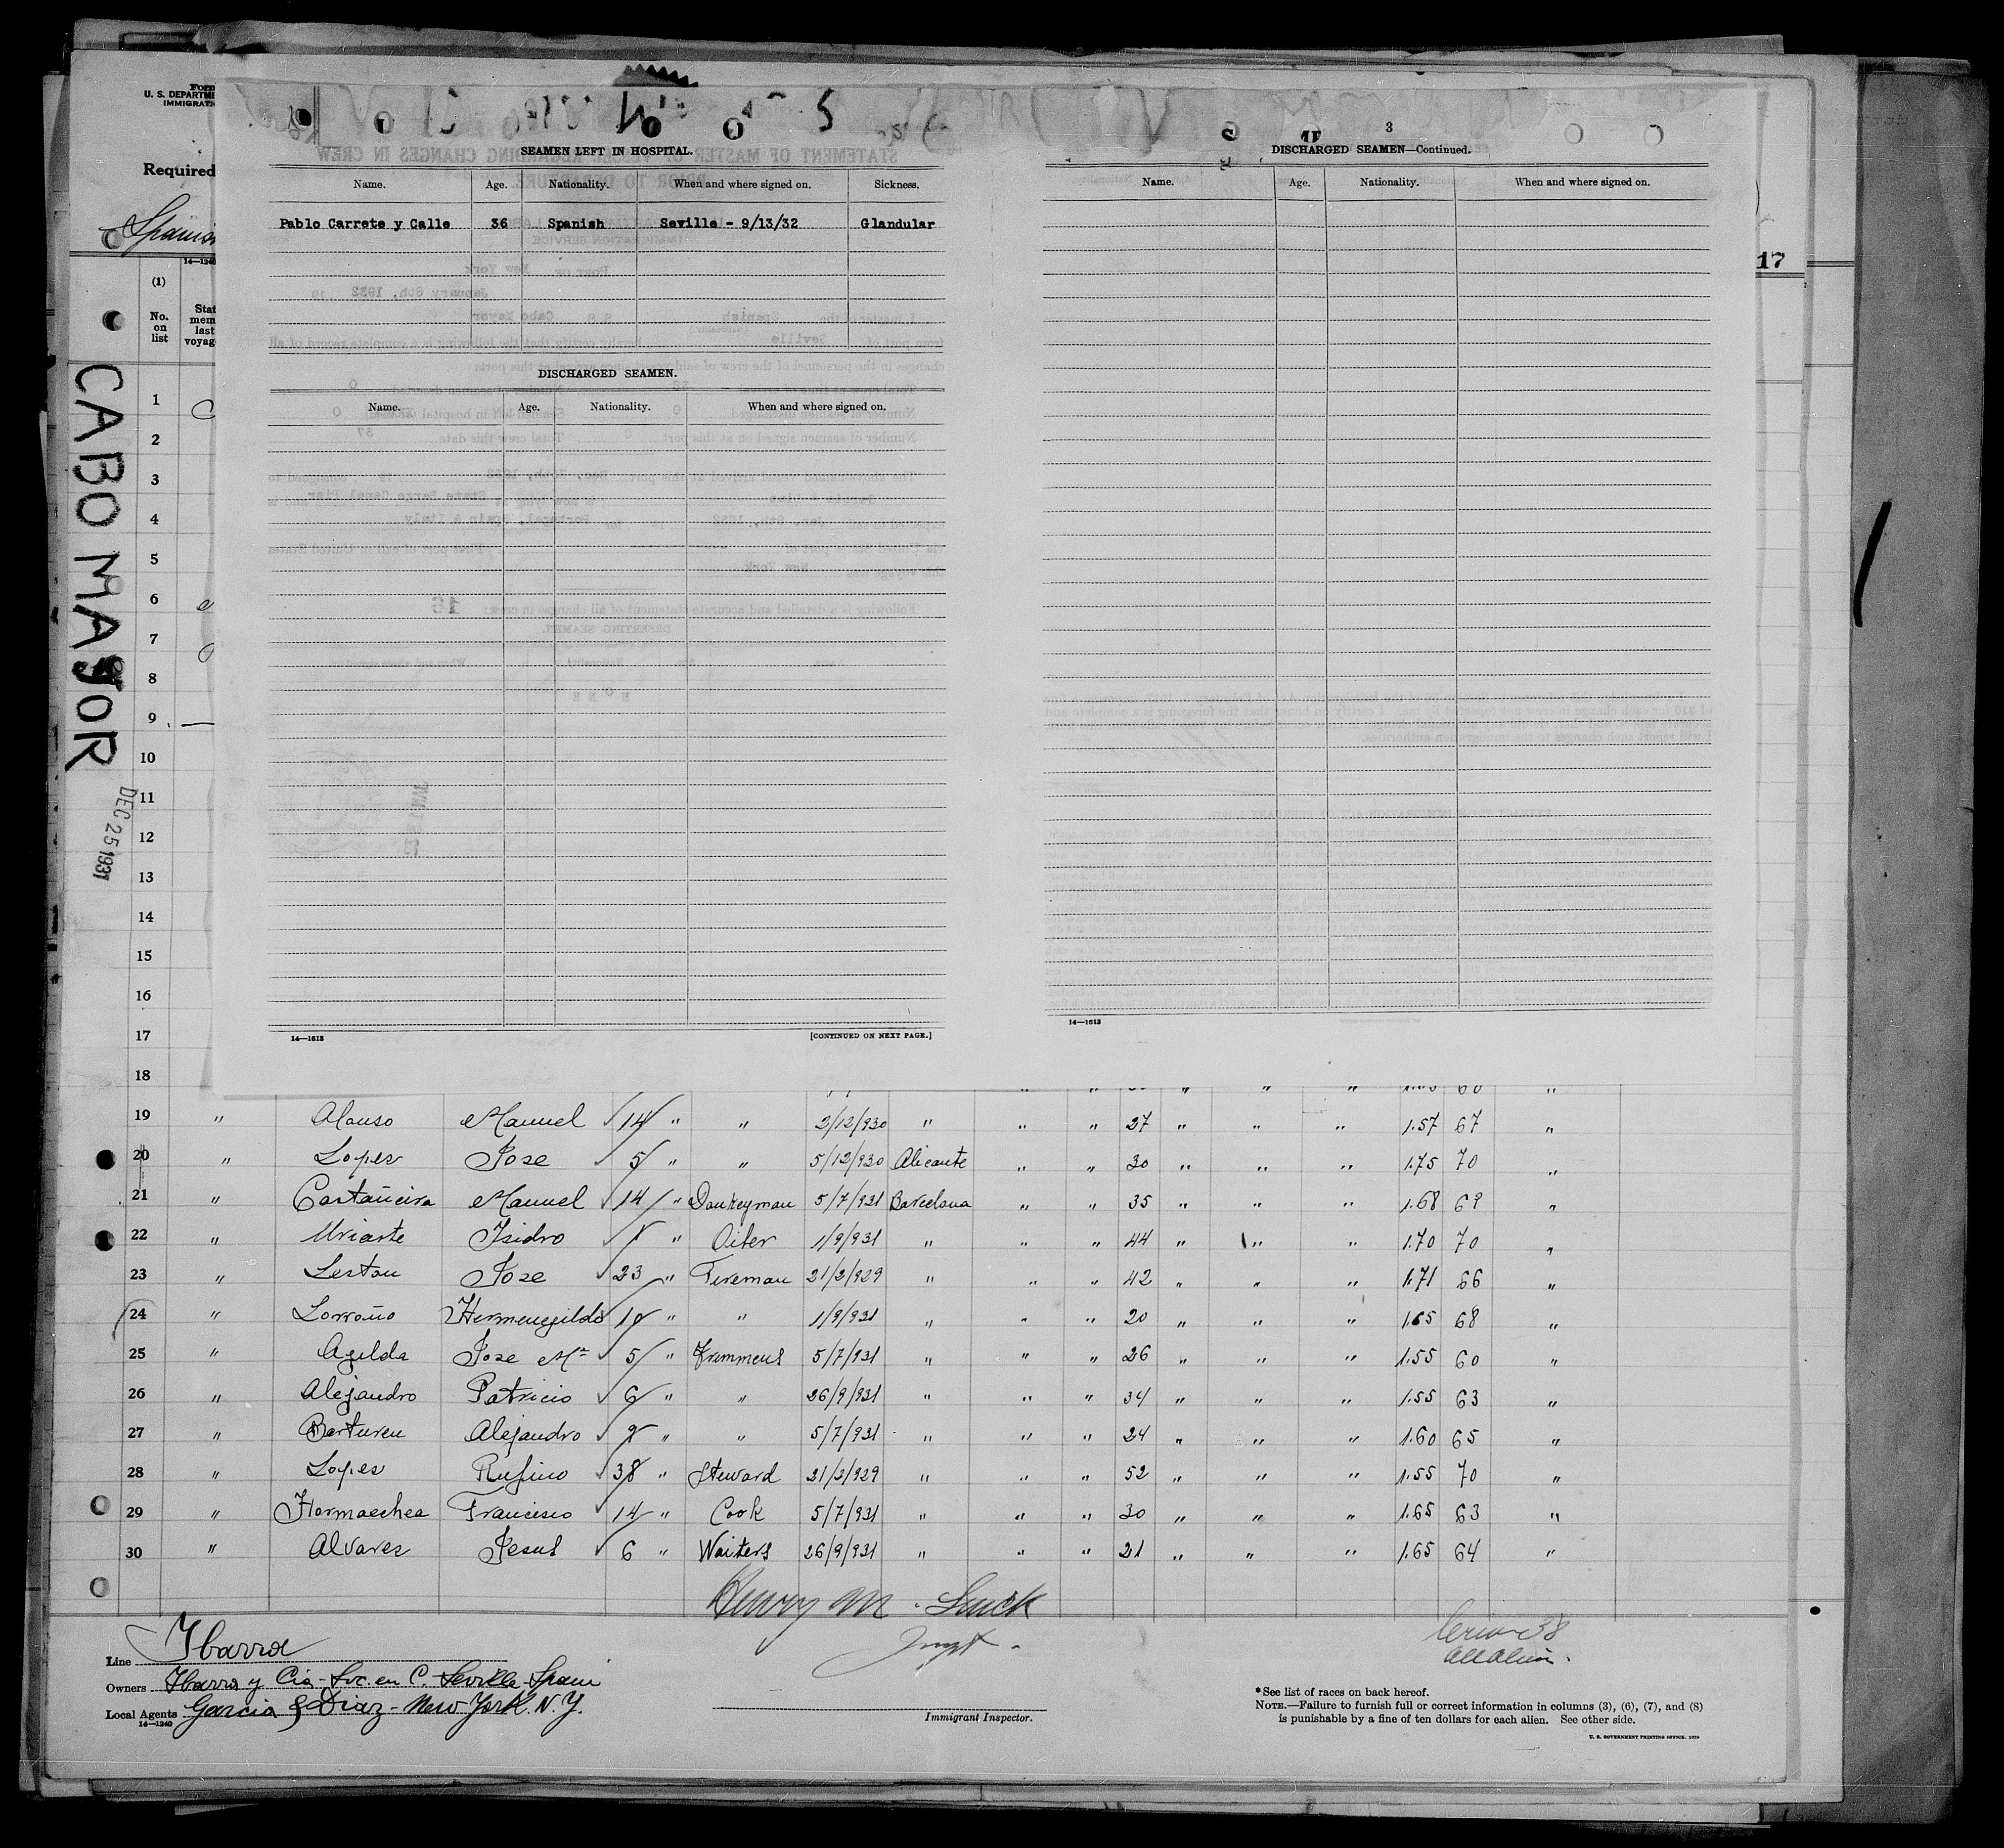 Form
U. S. DEPARTME
IMMIGRATI
Required
Spanis
14—1240
(1)
No. on list
Stat
mem
last
voyag
17
CABO MAYOR
DEC 25 1931
SEAMEN LEFT IN HOSPITAL.
Name. Age. Nationality. When and where signed on. Sickness.
Pablo Carrete y Calle 36 Spanish Seville - 9/13/32 Glandular
DISCHARGED SEAMEN.
Name. Age. Nationality. When and where signed on.
14—1613
[CONTINUED ON NEXT PAGE.]
3
DISCHARGED SEAMEN—Continued.
Name. Age. Nationality. When and where signed on.
14—1613
1
2
3
4
5
6
7
8
9
10
11
12
13
14
15
16
17
18
19 " Alonso Manuel 14 " " 2/12/930 " " " 27 " " " 1.57 67 "
20 " Lopez Jose 5 " " 5/12/930 Alicante " " 30 " " " 1.75 70 "
21 " Castañeira Manuel 14 " Donkeyman 5/7/931 Barcelona " " 35 " " " 1.68 69 "
22 " Uriarte Isidro 1 " Oiler 1/9/931 " " " 44 " " " 1.70 70 "
23 " Lestau Jose 23 " Fireman 21/2/929 " " " 42 " " " 1.71 66 "
24 " Lorroño Hermenegildo 10 " " 1/9/931 " " " 20 " " " 1.65 68 "
25 " Agilda Jose Mª 5 " Trimmers 5/7/931 " " " 26 " " " 1.55 60 "
26 " Alejandro Patricio 6 " " 26/9/931 " " " 34 " " " 1.55 63 "
27 " Barturen Alejandro " " 5/7/931 " " " 24 " " " 1.60 65 "
28 " Lopez Rufino 38 " Steward 21/2/929 " " " 52 " " " 1.55 70 "
29 " Hormaechea Francisco 14 " Cook 5/7/931 " " " 30 " " " 1.65 63 "
30 " Alvarez Jesus 6 " Waiters 26/9/931 " " " 21 " " " 1.65 64 "
Henry M.
Line Ibarra
Owners Ibarra y Cia - Soc. en C. Seville Spain
Local Agents Garcia & Diaz - New York. N. Y.
14—1240
Immigrant Inspector.
38
*See list of races on back hereof.
NOTE.—Failure to furnish full or correct information in columns (3), (6), (7), and (8)
is punishable by a fine of ten dollars for each alien. See other side.
U. S. GOVERNMENT PRINTING OFFICE. 1929